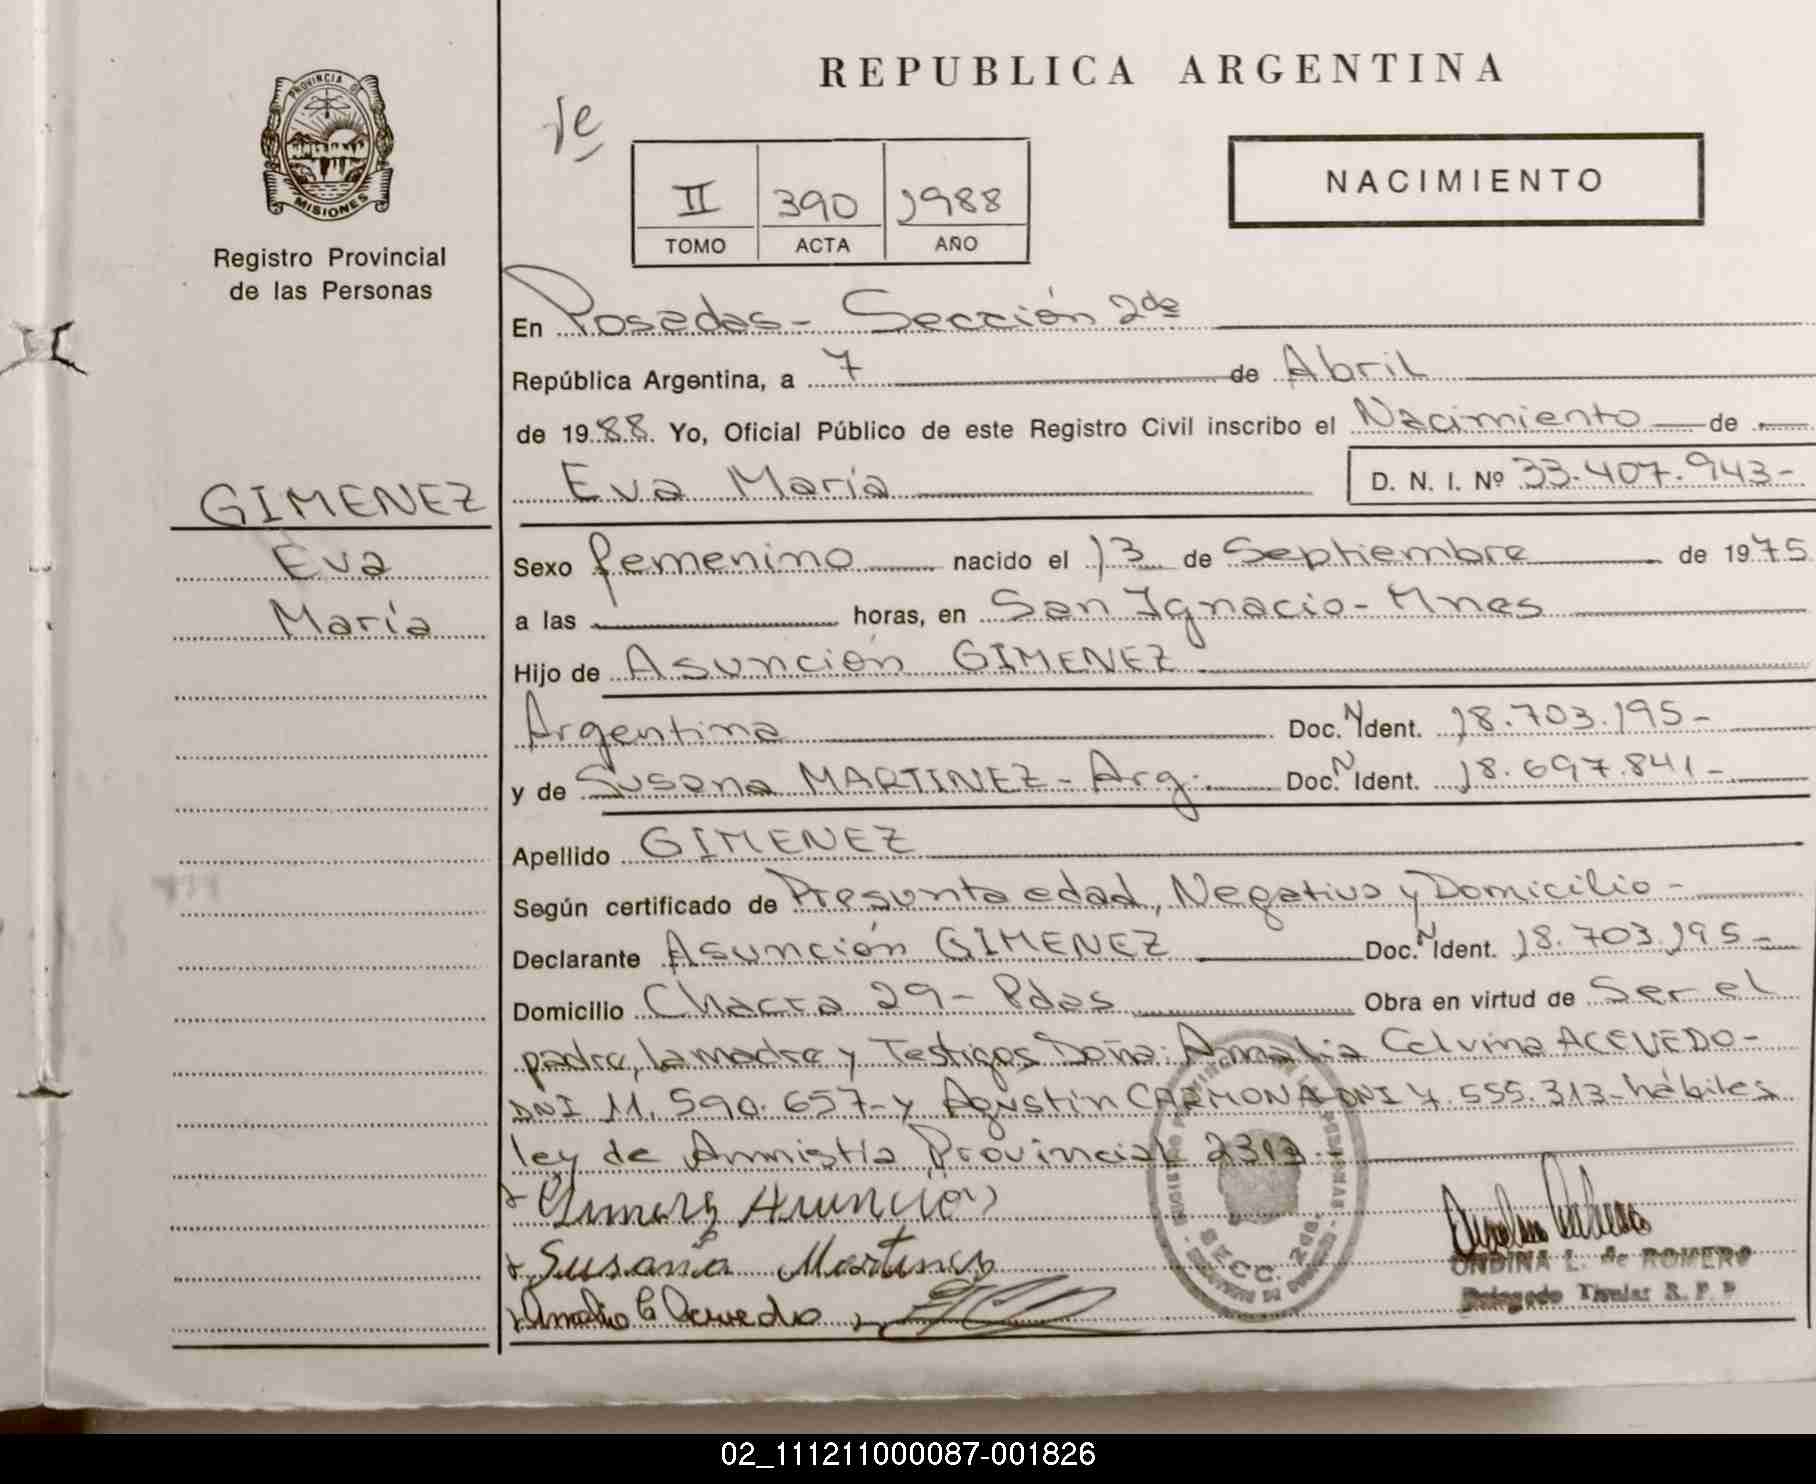 REPUBLICA ARGENTINA
PROVINCIA DE
MISIONES
Registro Provincial
de las Personas
II 390 1988
TOMO ACTA AÑO
NACIMIENTO
En Posadas - Sección 2da
República Argentina, a 7 de Abril
de 1988. Yo, Oficial Público de este Registro Civil inscribo el Nacimiento de
Eva María D. N. I. Nº 33.407.943-
GIMENEZ
Eva
María
Sexo femenino nacido el 13 de Septiembre de 1975
a las horas, en San Ignacio - Mnes
Hijo de Asunción GIMENEZ
Argentina Doc. N Ident. 18.703.195-
y de Susana MARTINEZ - Arg. Doc. N Ident. 18.697.841-
Apellido GIMENEZ
Según certificado de Presunta edad, Negativo y Domicilio -
Declarante Asunción GIMENEZ Doc. N Ident. 18.703.195-
Domicilio Chacra 29 - Pdas Obra en virtud de Ser el
padre, la madre y Testigos Doña: Amalia Celvina ACEVEDO-
DNI 11.590.657- y Agustín CARMONA DNI 7.555.313- hábiles
ley de Amnistía Provincial 2313.-
Gimenez Asunción
Susana Martinez
Amalia C Acevedo
SECC. 2da.
ONDINA L. de ROMERO
Delegado Titular R. P. P
02_111211000087-001826